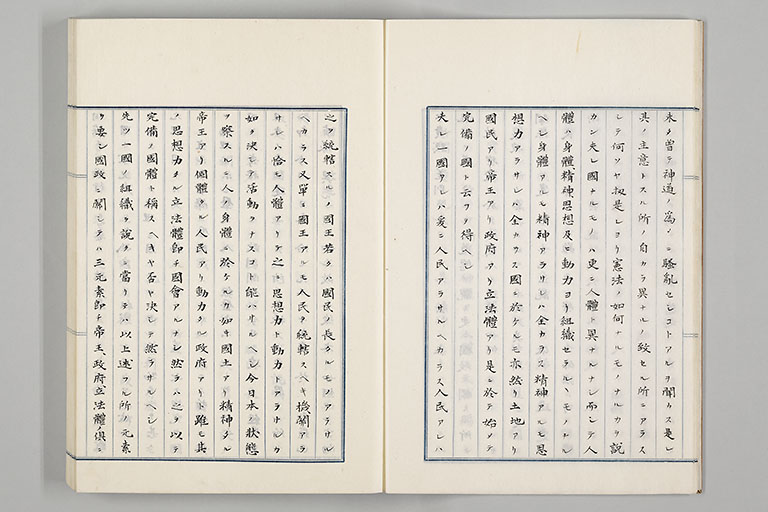 未タ曾テ神道ノ為メニ騒亂セシコトアルヲ聞カス是レ
其ノ主意トスル所自カラ異ナルノ致セル所ニアラス
シテ何ソヤ扨是レヨリ憲法ノ如何ナルモノナルカヲ説
カン夫レ國ナルモノハ更ニ人體ト異ナルナシ而シテ人
體ハ身體精神思想及ヒ動力ヨリ組織セラルヽモノナル
ヘシ身體アルモ精神アラサレハ全カラス精神アルモ思
想力アラサレハ全カラス國ニ於ケルモ亦然リ土地アリ
國民アリ帝王アリ政府アリ立法體アリ是ニ於テ始メテ
完備ノ國ト云フヲ得ヘシ
夫レ一國アレハ爰ニ人民アラサルヘカラス人民アレハ
之ヲ統轄スルノ國王若クハ國民ノ長タルモノアラサル
ヘカラス又單ニ國王アルモ人民ヲ統轄スヘキ機關アラ
サレハ恰モ人體アリテ之ニ思想力ト動力トアラサルカ
如ク決シテ活動ヲナスコト能ハサルヘシ今日本ノ狀態
ヲ察スルニ人ノ身體ニ於ケルカ如キ國土アリ精神タル
帝王アリ個體タル人民アリ動力タル政府アリト雖モ其
ノ思想力タル立法體即チ國會アルナシ然ラハ之ヲ以テ
完備ノ國體ト稱スヘキヤ否ヤ決シテ然ラサルヘシ
先ツ一國ノ組織ヲ説クニ當リテハ以上述フル所ノ元素
ヲ要シ國政ニ關シテハ三元素即チ帝王、政府立法體ノ倶ニ